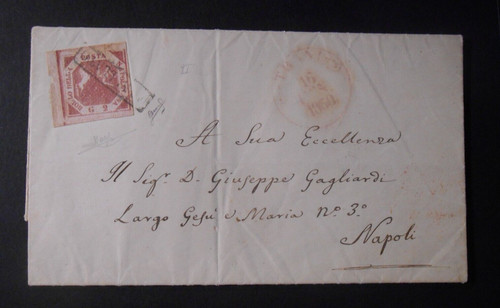 A Sua Eccellenza
Il Sigr. D. Giuseppe Gagliardi
Largo Gesù e Maria nº. 3º.
Napoli